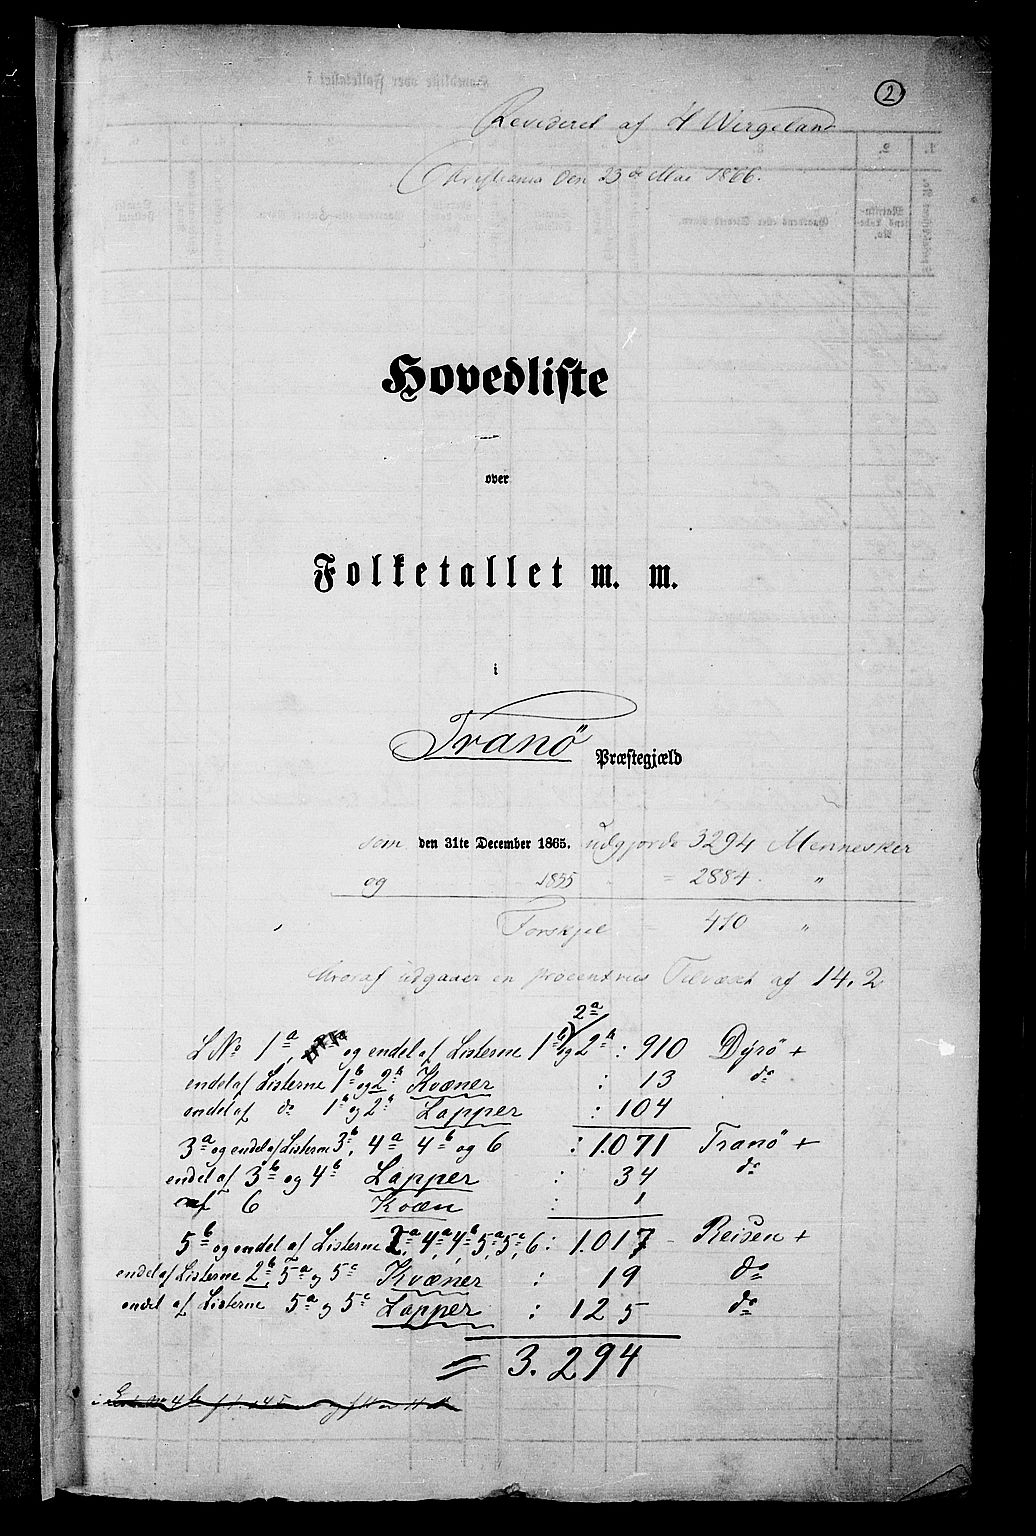 2
Revideret af H Wergeland
Christiania den 23de Mai 1866.
Hovedliste
over
Folketallet m. m.
i
Tranö Præstegjæld
som den 31te December 1865. udgjorde 3294 Mennesker
og 1855 " = 2884. "
Forskjel = 410 "
hvoraf udgaaer en procentvis Tilvæxt af 14.2
2a
L No 1a, og endel af Listerne 1b og 2b : 910 Dyrö +
endel af Listerne 1b og 2b Kvæner : 13 do
endel af do 1b og 2b Lapper : 104
3a og endel af Listerne 3b, 4a 4b og 6 : 1.071 Tranö +
endel af 3b og 4b Lapper : 34 do
af 6 Kvæn : 1
5b og endel af Listerne 2a, 4a, 4b, 5a, 5c, 6 : 1.017 - Reisen +
endel af Listerne 2b, 5a og 5c Kvæner : 19 do
endel af Listerne 5a og 5c Lapper : 125 do
= 3.294